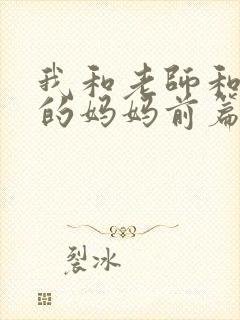 我和老師和
的妈妈前篇
裂冰